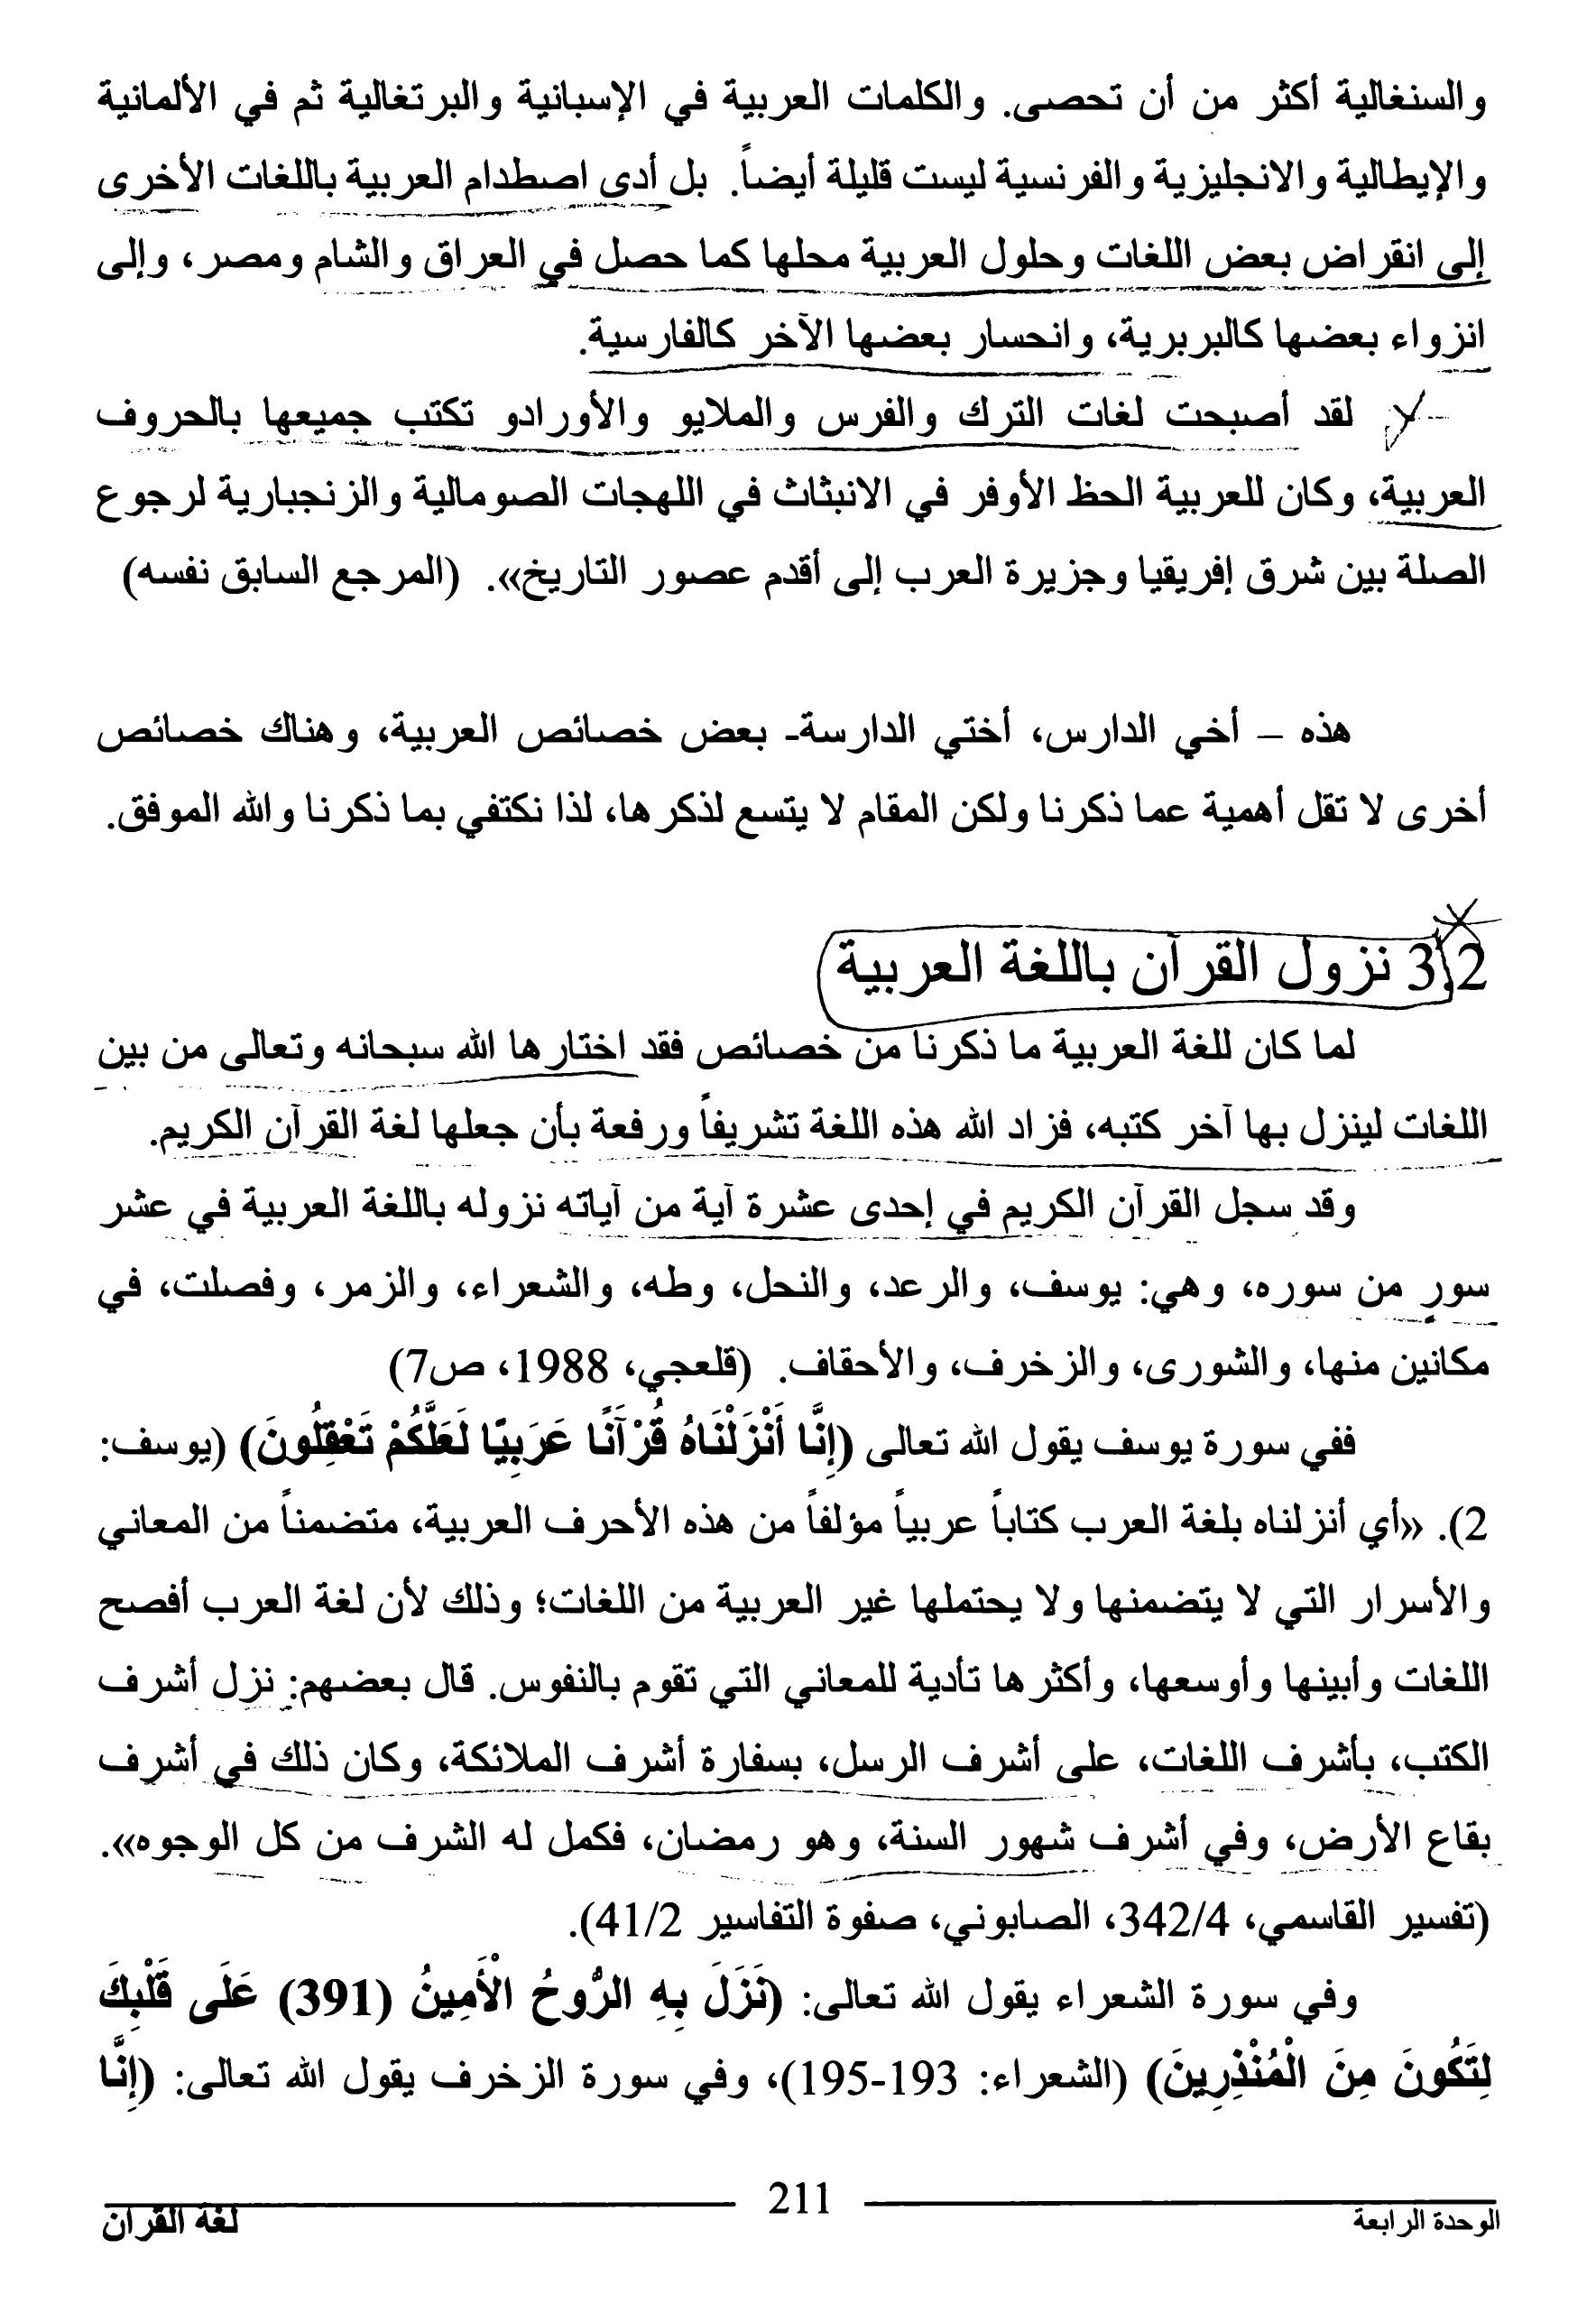 والسنغالية أكثر من أن تحصى. والكلمات العربية في الإسبانية والبرتغالية ثم في الألمانية
والإيطالية والانجليزية والفرنسية ليست قليلة أيضاً. بل أدى اصطدام العربية باللغات الأخرى
إلى انقراض بعض اللغات وحلول العربية محلها كما حصل في العراق والشام ومصر، وإلى
انزواء بعضها كالبربرية، وانحسار بعضها الآخر كالفارسية.
لقد أصبحت لغات الترك والفرس والملايو والأورادو تكتب جميعها بالحروف
العربية، وكان للعربية الحظ الأوفر في الانبثاث في اللهجات الصومالية والزنجبارية لرجوع
الصلة بين شرق إفريقيا وجزيرة العرب إلى أقدم عصور التاريخ». (المرجع السابق نفسه)
هذه – أخي الدارس، أختي الدارسة- بعض خصائص العربية، وهناك خصائص
أخرى لا تقل أهمية عما ذكرنا ولكن المقام لا يتسع لذكرها، لذا نكتفي بما ذكرنا والله الموفق.
3.2 نزول القرآن باللغة العربية
لما كان للغة العربية ما ذكرنا من خصائص فقد اختارها الله سبحانه وتعالى من بين
اللغات لينزل بها آخر كتبه، فزاد الله هذه اللغة تشريفاً ورفعة بأن جعلها لغة القرآن الكريم.
وقد سجل القرآن الكريم في إحدى عشرة آية من آياته نزوله باللغة العربية في عشر
سورٍ من سوره، وهي: يوسف، والرعد، والنحل، وطه، والشعراء، والزمر، وفصلت، في
مكانين منها، والشورى، والزخرف، والأحقاف. (قلعجي، 1988، ص7)
ففي سورة يوسف يقول الله تعالى (إِنَّا أَنْزَلْنَاهُ قُرْآنًا عَرَبِيًّا لَعَلَّكُمْ تَعْقِلُونَ) (يوسف:
2). «أي أنزلناه بلغة العرب كتاباً عربياً مؤلفاً من هذه الأحرف العربية، متضمناً من المعاني
والأسرار التي لا يتضمنها ولا يحتملها غير العربية من اللغات؛ وذلك لأن لغة العرب أفصح
اللغات وأبينها وأوسعها، وأكثرها تأدية للمعاني التي تقوم بالنفوس. قال بعضهم: نزل أشرف
الكتب، بأشرف اللغات، على أشرف الرسل، بسفارة أشرف الملائكة، وكان ذلك في أشرف
بقاع الأرض، وفي أشرف شهور السنة، وهو رمضان، فكمل له الشرف من كل الوجوه».
(تفسير القاسمي، 342/4، الصابوني، صفوة التفاسير 41/2).
وفي سورة الشعراء يقول الله تعالى: (نَزَلَ بِهِ الرُّوحُ الْأَمِينُ (391) عَلَى قَلْبِكَ
لِتَكُونَ مِنَ الْمُنْذِرِينَ) (الشعراء: 193-195)، وفي سورة الزخرف يقول الله تعالى: (إِنَّا
الوحدة الرابعة 211 لغة القرآن